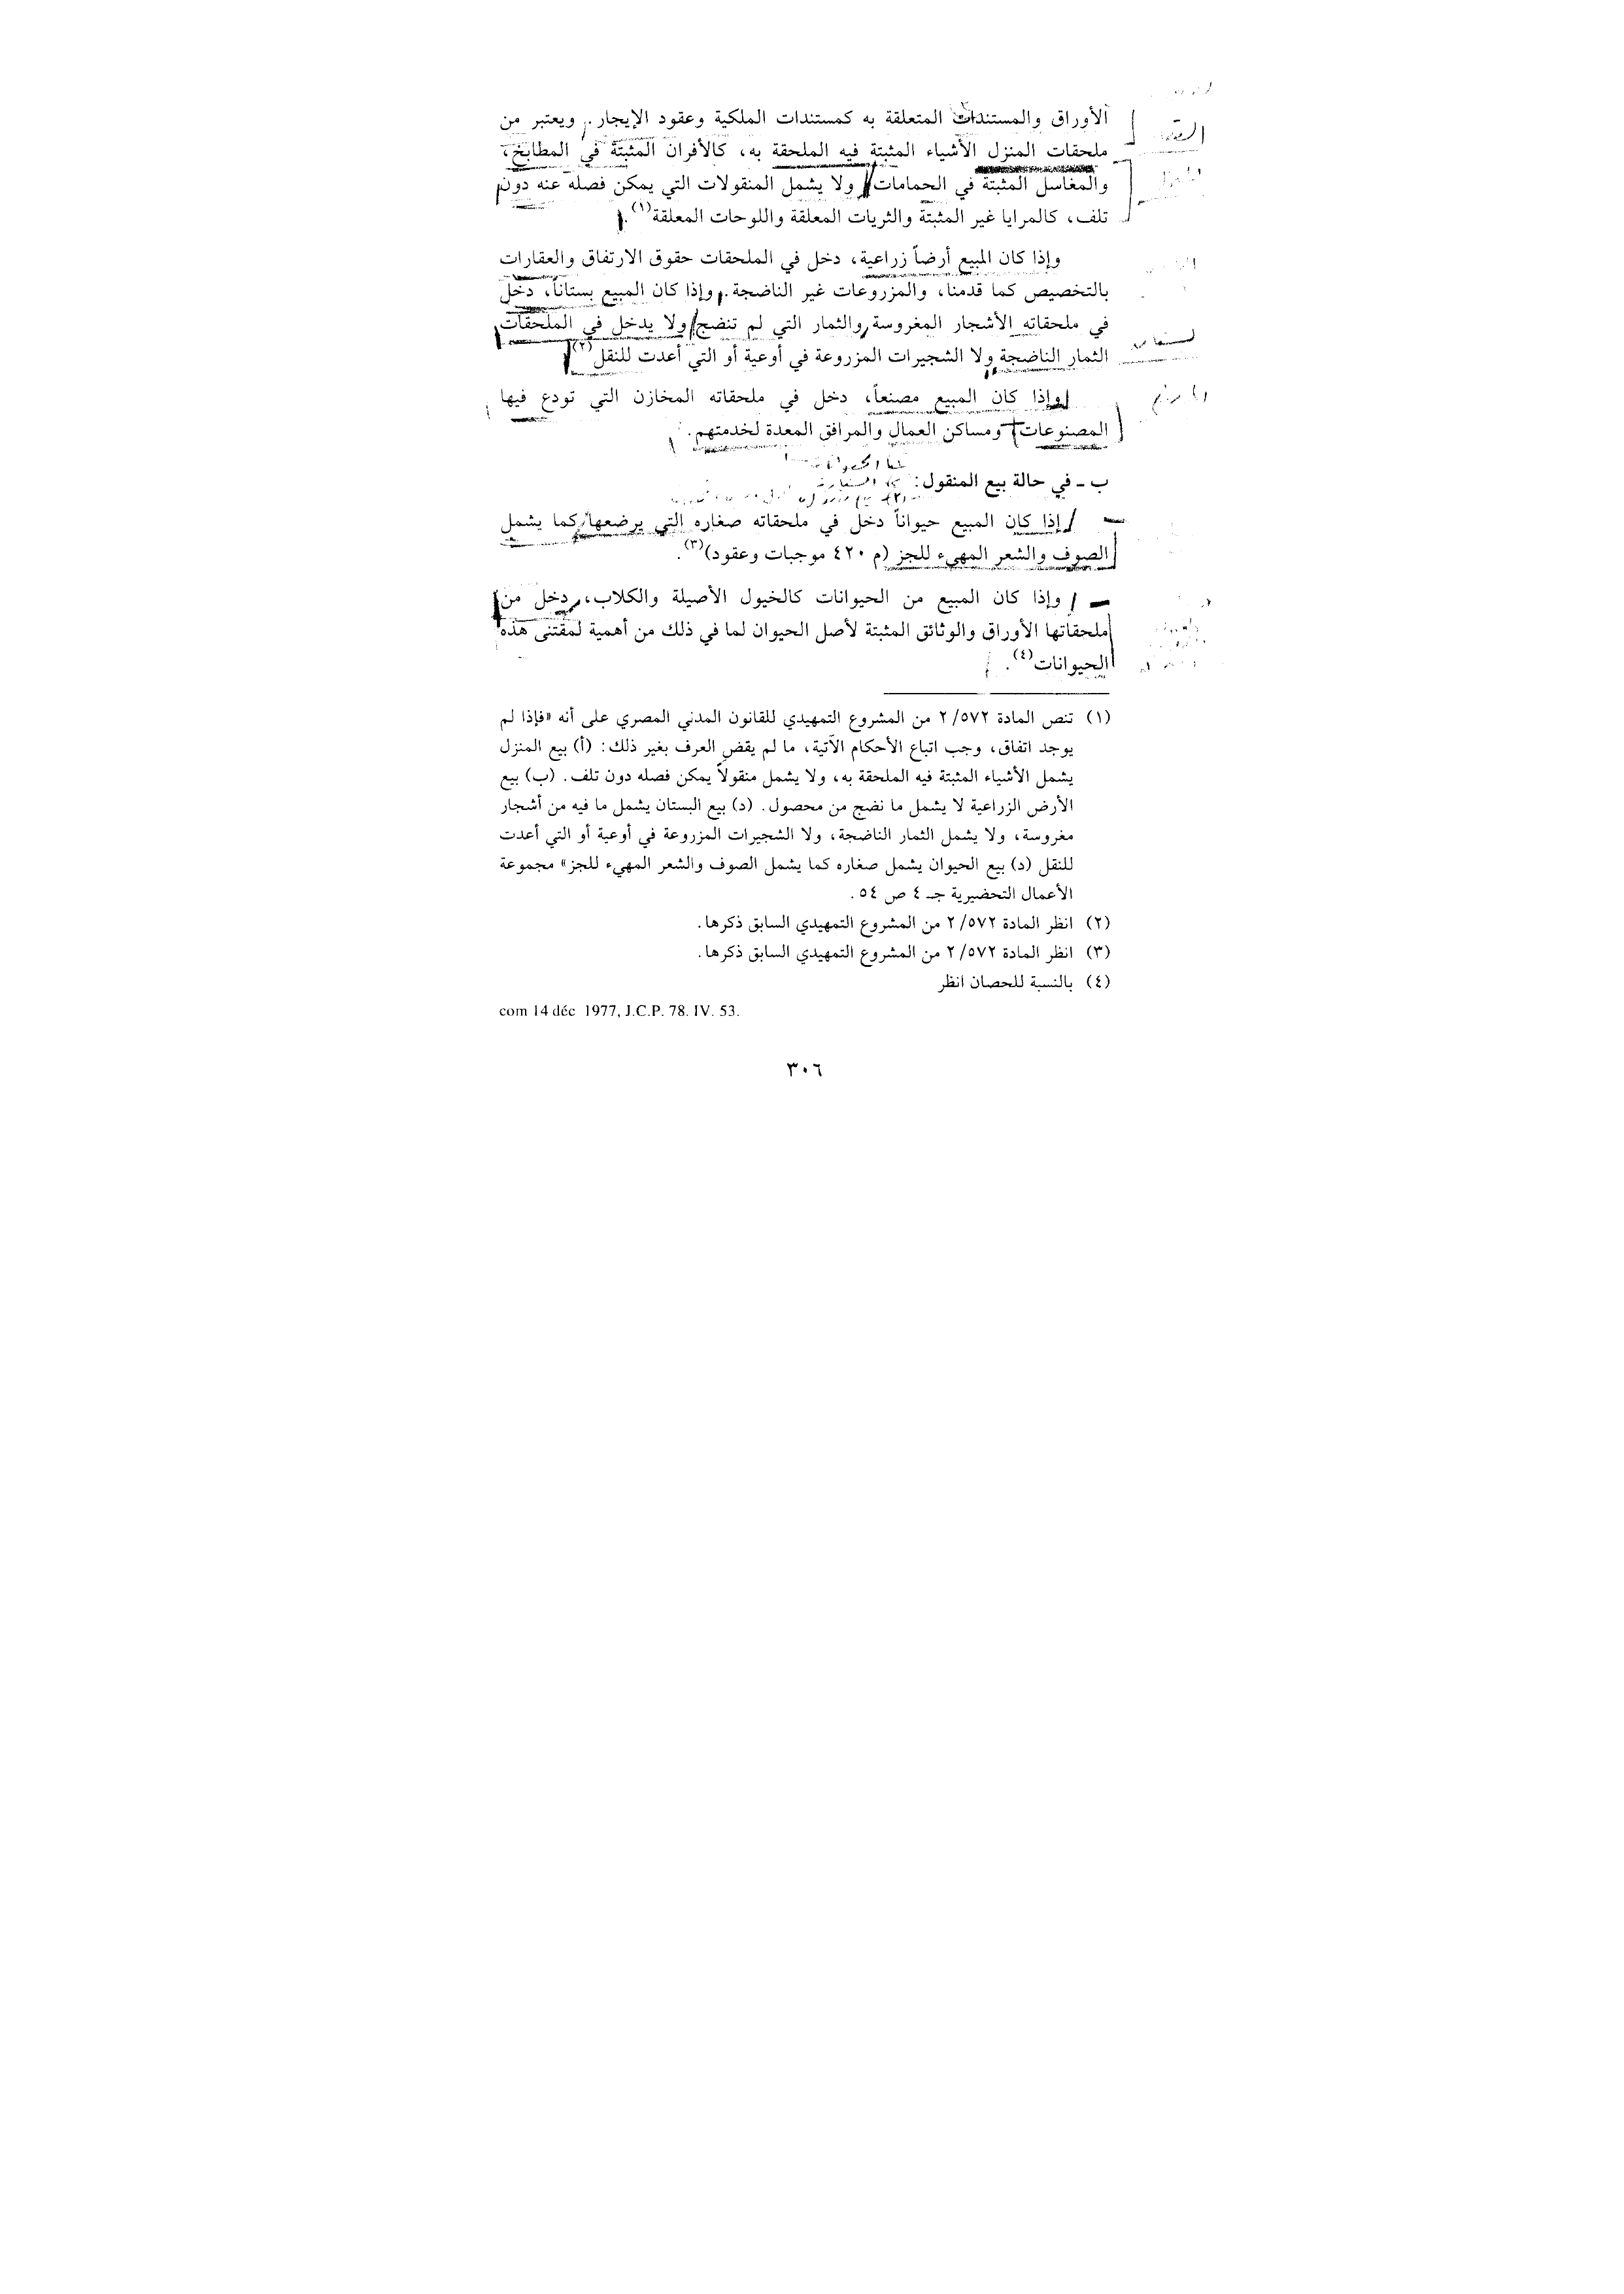 الأوراق والمستندات المتعلقة به كمستندات الملكية وعقود الإيجار. ويعتبر من
ملحقات المنزل الأشياء المثبتة فيه الملحقة به، كالأفران المثبتة في المطابخ،
والمغاسل المثبتة في الحمامات ولا يشمل المنقولات التي يمكن فصله عنه دون
تلف، كالمرايا غير المثبتة والثريات المعلقة واللوحات المعلقة(١).
وإذا كان المبيع أرضاً زراعية، دخل في الملحقات حقوق الارتفاق والعقارات
بالتخصيص كما قدمنا، والمزروعات غير الناضجة. وإذا كان المبيع بستاناً، دخل
في ملحقاته الأشجار المغروسة والثمار التي لم تنضج ولا يدخل في الملحقات
الثمار الناضجة ولا الشجيرات المزروعة في أوعية أو التي أعدت للنقل(٢)
وإذا كان المبيع مصنعاً، دخل في ملحقاته المخازن التي تودع فيها
المصنوعات ومساكن العمال والمرافق المعدة لخدمتهم.
ب ـ في حالة بيع المنقول:
إذا كان المبيع حيواناً دخل في ملحقاته صغاره التي يرضعها كما يشمل
الصوف والشعر المهيء للجز (م ٤٢٠ موجبات وعقود)(٣).
وإذا كان المبيع من الحيوانات كالخيول الأصيلة والكلاب، دخل من
ملحقاتها الأوراق والوثائق المثبتة لأصل الحيوان لما في ذلك من أهمية لمقتنى هذه
الحيوانات(٤).
(١) تنص المادة ٢/٥٧٢ من المشروع التمهيدي للقانون المدني المصري على أنه «فإذا لم
يوجد اتفاق، وجب اتباع الأحكام الآتية، ما لم يقض العرف بغير ذلك: (أ) بيع المنزل
يشمل الأشياء المثبتة فيه الملحقة به، ولا يشمل منقولاً يمكن فصله دون تلف. (ب) بيع
الأرض الزراعية لا يشمل ما نضج من محصول. (د) بيع البستان يشمل ما فيه من أشجار
مغروسة، ولا يشمل الثمار الناضجة، ولا الشجيرات المزروعة في أوعية أو التي أعدت
للنقل (د) بيع الحيوان يشمل صغاره كما يشمل الصوف والشعر المهيء للجز» مجموعة
الأعمال التحضيرية جـ ٤ ص ٥٤.
(٢) انظر المادة ٢/٥٧٢ من المشروع التمهيدي السابق ذكرها.
(٣) انظر المادة ٢/٥٧٢ من المشروع التمهيدي السابق ذكرها.
(٤) بالنسبة للحصان انظر
com 14 déc 1977, J.C.P. 78. IV. 53.
٣٠٦